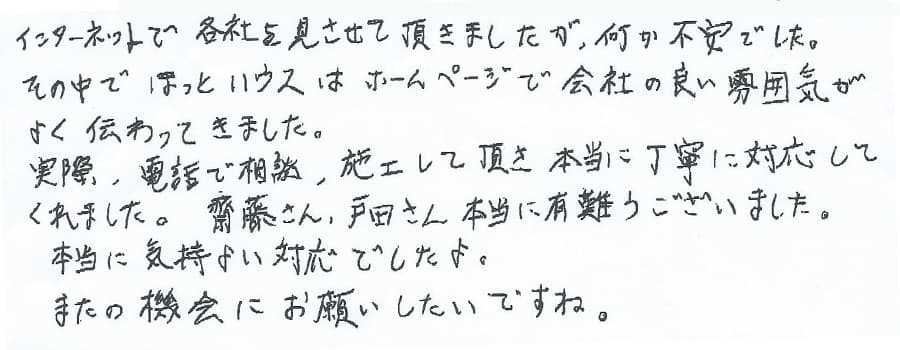 インターネットで 各社を見させて頂きましたが、何か不安でした。
その中で ほっとハウスは ホームページで会社の良い雰囲気が
よく伝わってきました。
実際、電話で相談、施工して頂き 本当に丁寧に対応して
くれました。 齋藤さん、戸田さん 本当に有難うございました。
本当に気持よい対応でしたよ。
またの機会にお願いしたいですね。